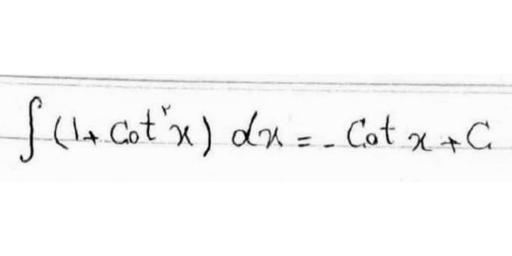 ∫(1+Cot²x) dx = -Cot x + C